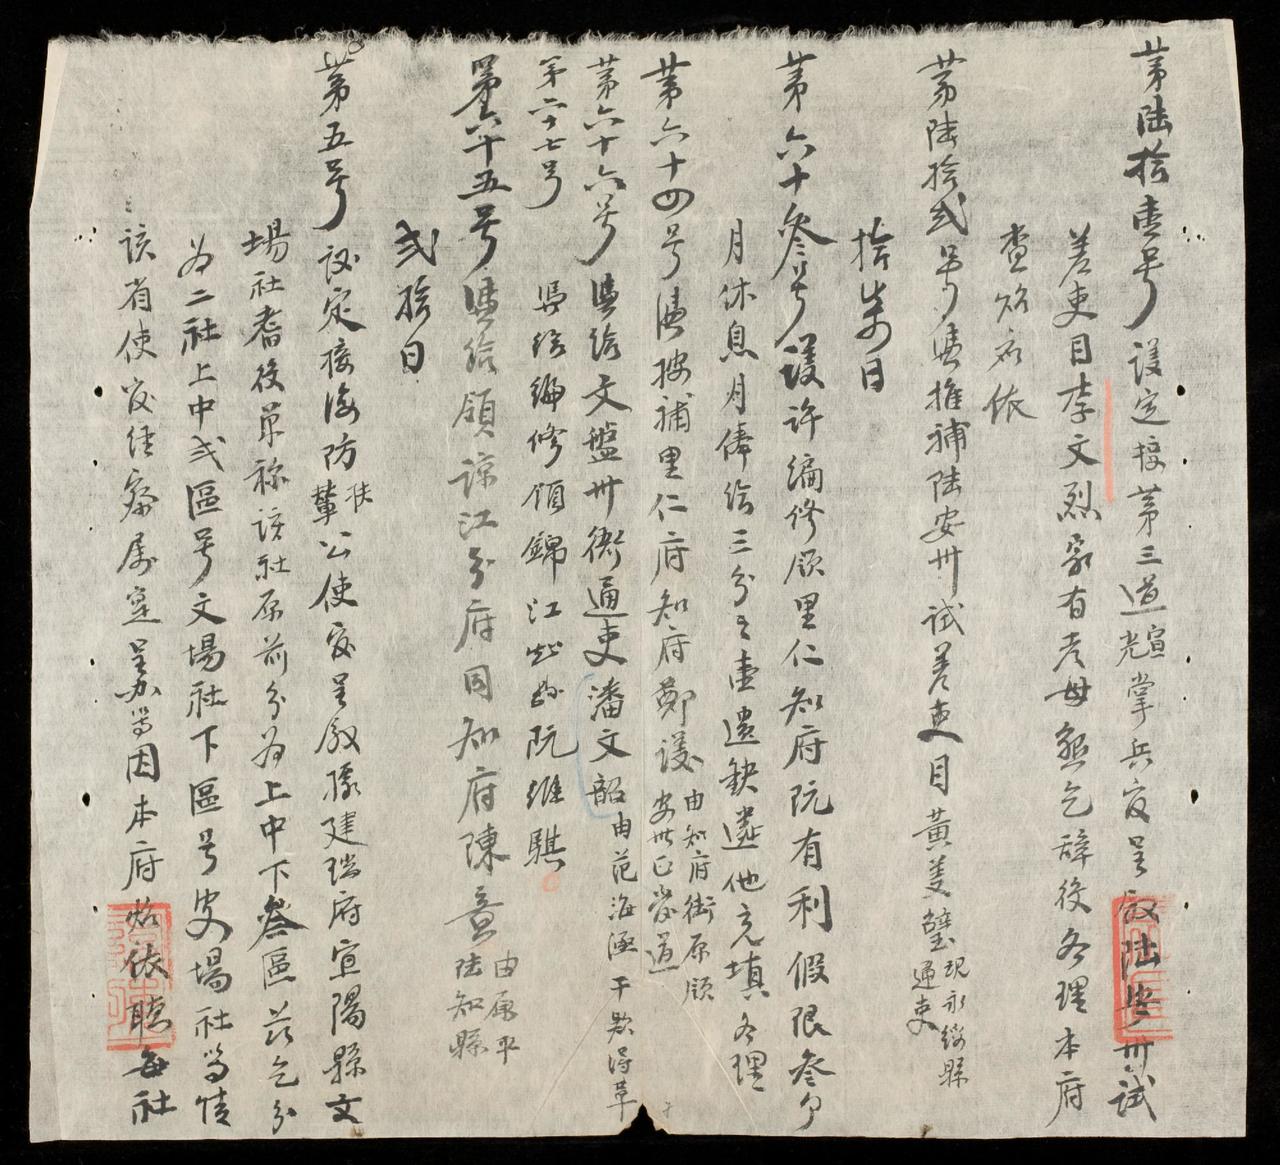 第陸拾壹号 議定接第三道宣光掌兵官呈叙陸安州試
差吏目李文烈家有老母懇乞辞役各理本府
查照右依
第陸拾弍号 憑推補陸安州試差吏目黃美璧現永綏縣通吏
拾柒日
第六十叄号 議許編修領里仁知府阮有利假限叄个
月休息月俸給三分之壹遺缺遴他充填各理
第六十四号 憑按補里仁府知府鄭議由知府銜原領安州正掌道
第六十六号 憑給文盤州銜通吏潘文韶由范海涵干欵得革
第六十七号 馮給編修領錦江知縣阮維騏
第六十五号 憑給領諒江分府同知府陳意由原平陸知縣
弍拾日
第五号 議定接海防軰公使官呈叙據建瑞府宜陽縣文
場社耆役單称該社原前分為上中下叄區茲乞分
為二社上中弍區号文場社下區号史場社等情
該省使官經察属寔呈办等因本府照依聽每社